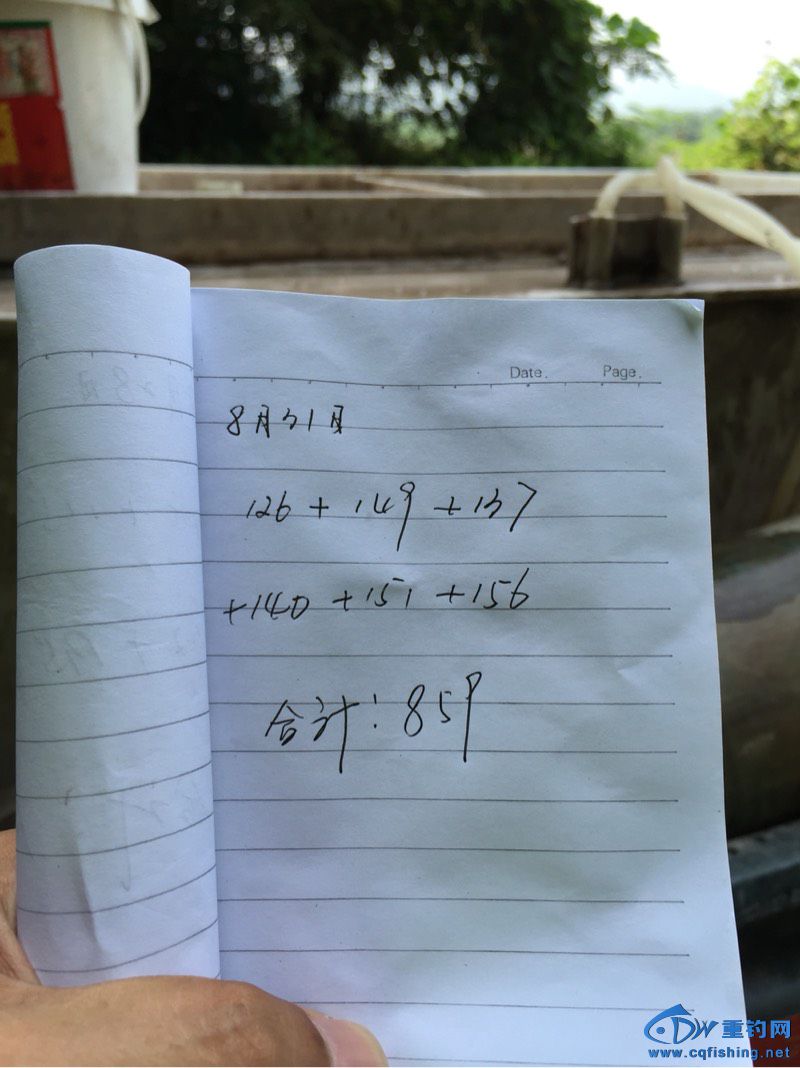 Date.
Page.
8月31日
126 + 149 + 137
+140 +151 +156
合计:859
DW 重钓网
www.cqfishing.net